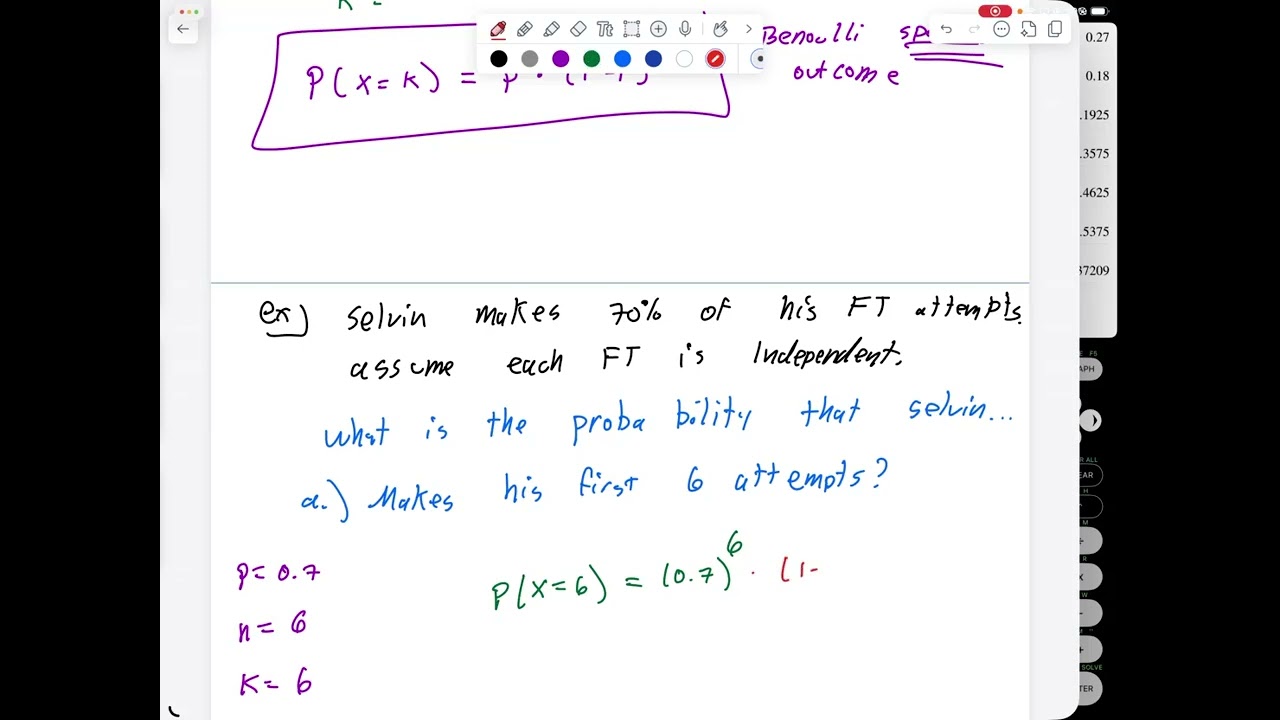 Benoulli
outcome
P(X=K) =
0.27
0.18
.1925
.3575
.4625
.5375
37209
ex) selvin makes 70% of his FT attempts.
assume each FT is Independent.
what is the probability that selvin...
a.) Makes his first 6 attempts?
P(X=6) = (0.7)^6 · (1-
p= 0.7
n= 6
K= 6